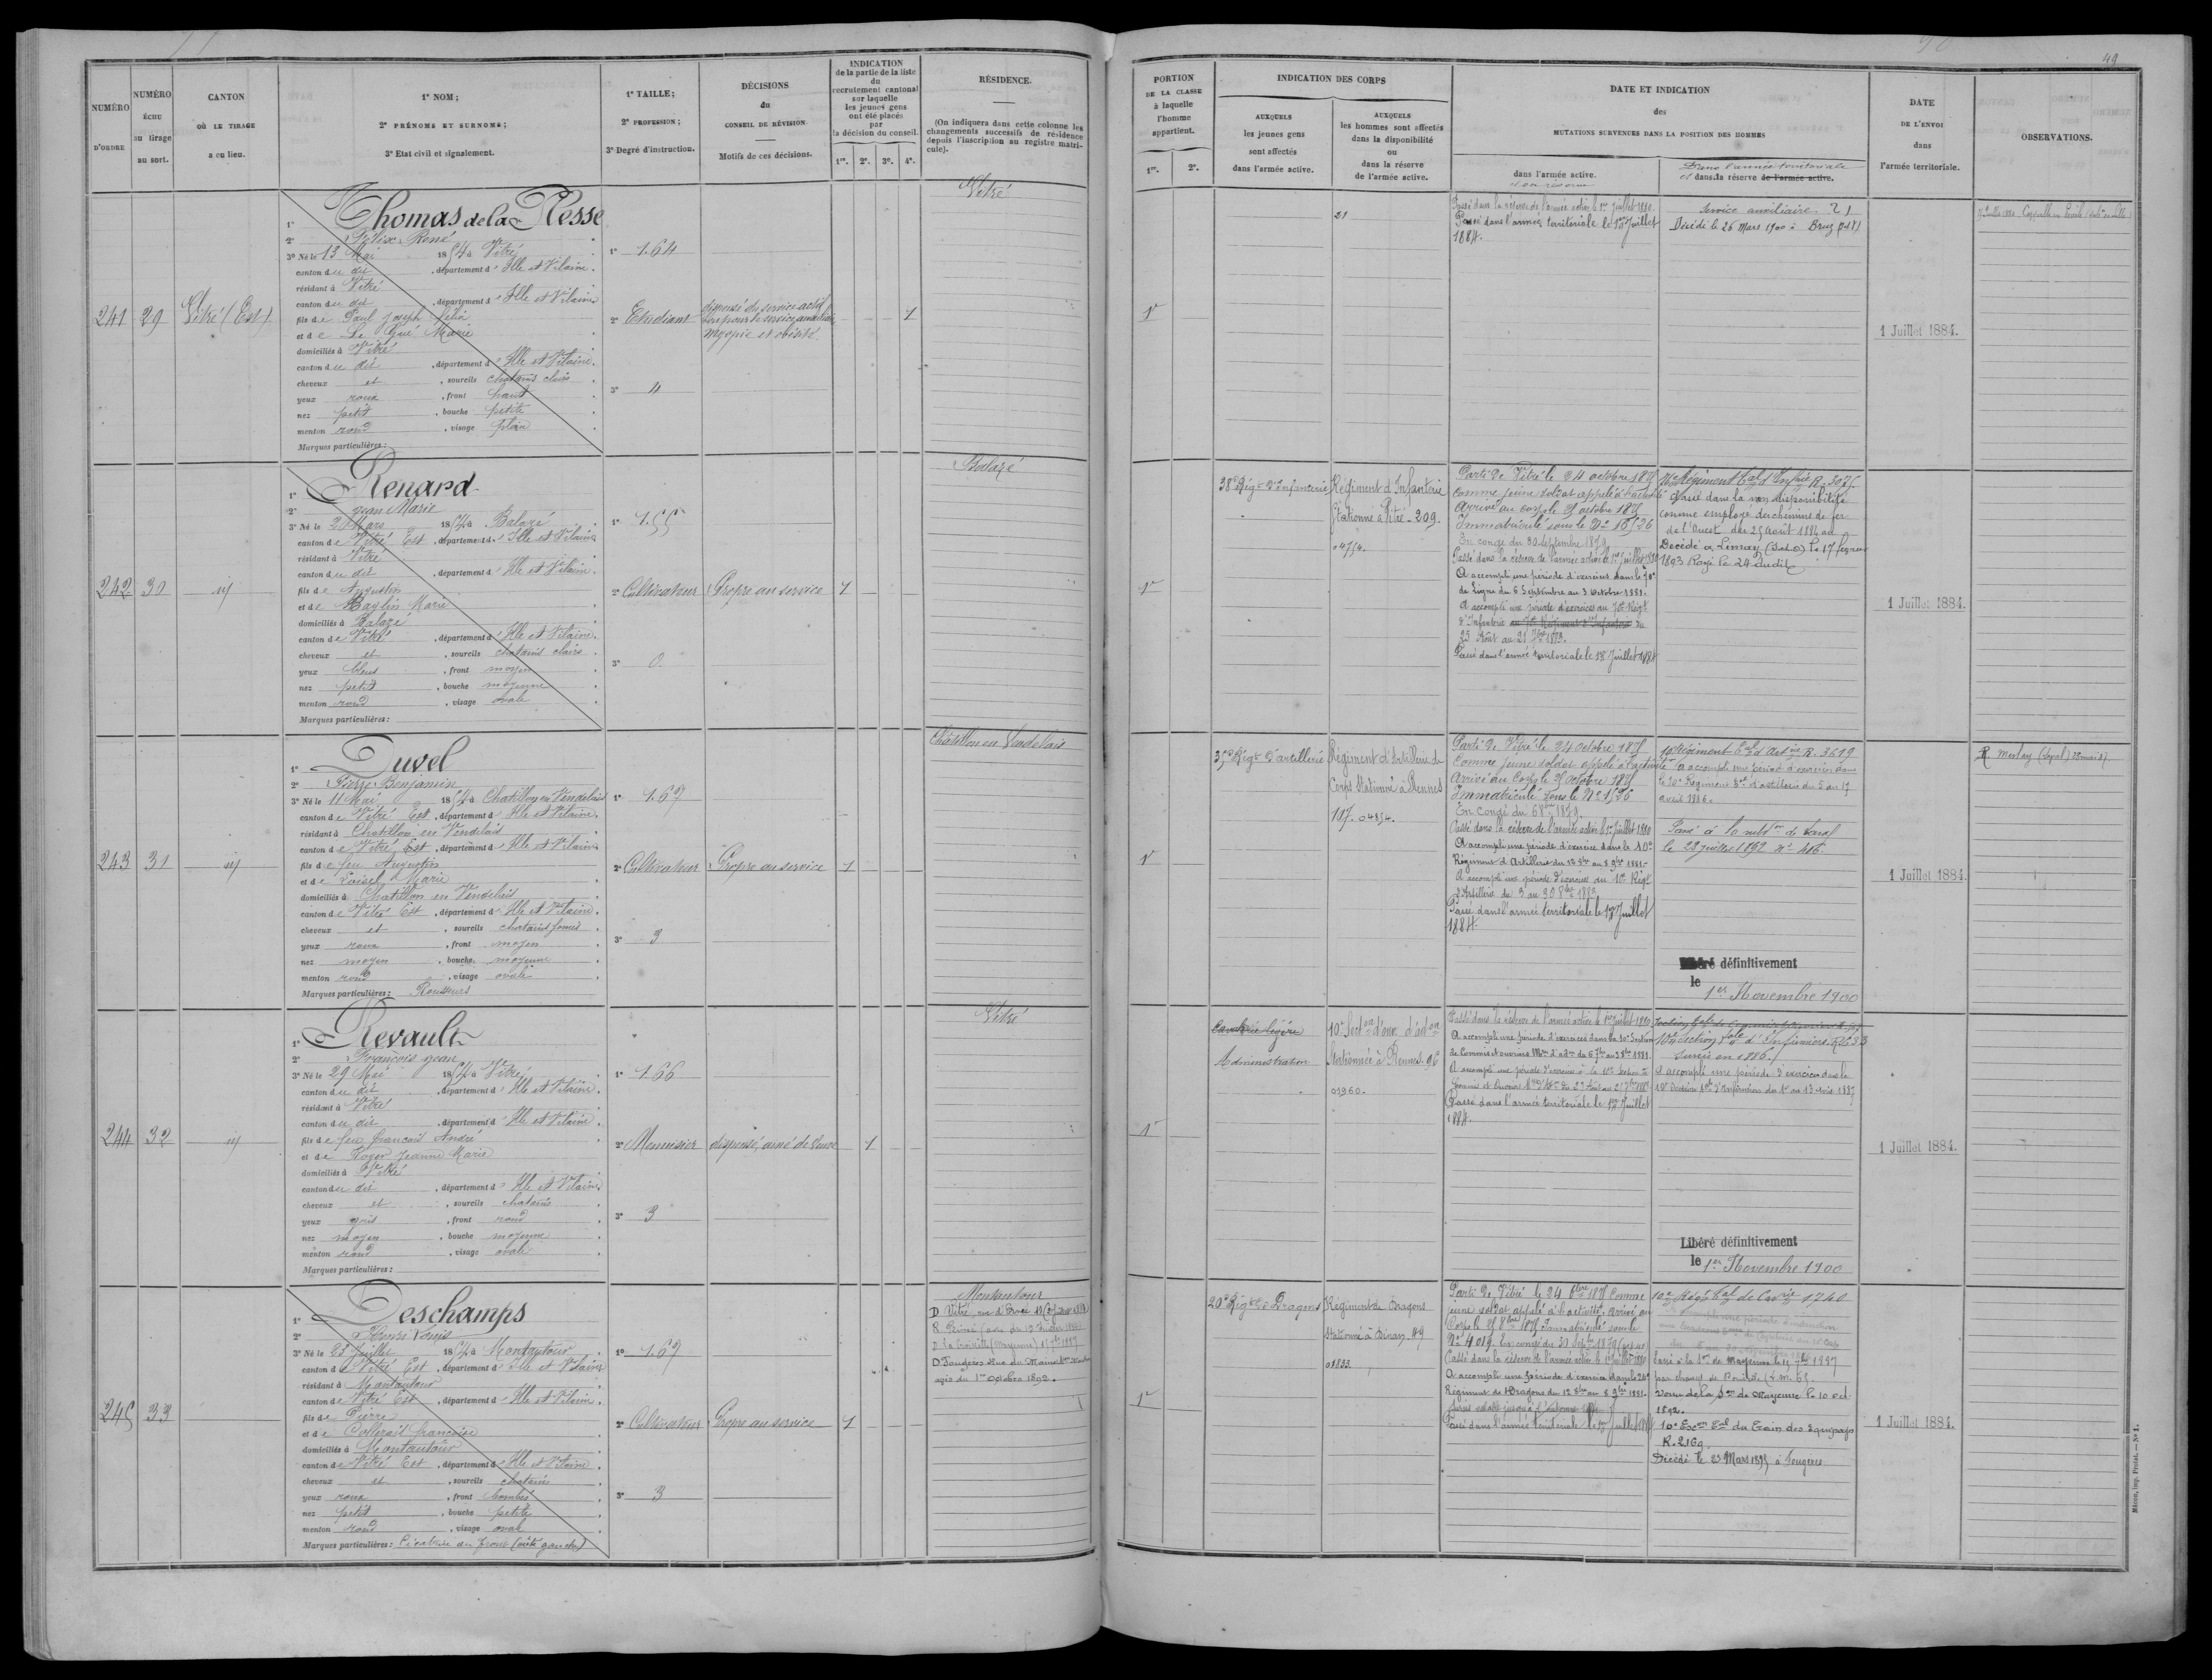 49
NUMÉRO D'ORDRE
NUMÉRO ÉCHU au tirage au sort.
CANTON OÙ LE TIRAGE a eu lieu.
1° NOM;
2° PRÉNOMS ET SURNOMS;
3° Etat civil et signalement.
1° TAILLE;
2° PROFESSION;
3° Degré d'instruction.
DÉCISIONS du CONSEIL DE RÉVISION.
Motifs de ces décisions.
INDICATION de la partie de la liste du recrutement cantonal sur laquelle les jeunes gens ont été placés par la décision du conseil.
1re. 2e. 3e. 4e.
RÉSIDENCE.
(On indiquera dans cette colonne les changements successifs de résidence depuis l'inscription au registre matricule).
PORTION DE LA CLASSE à laquelle l'homme appartient.
1re. 2e.
INDICATION DES CORPS
AUXQUELS les jeunes gens sont affectés dans l'armée active.
AUXQUELS les hommes sont affectés dans la disponibilité ou dans la réserve de l'armée active.
DATE ET INDICATION des MUTATIONS SURVENUES DANS LA POSITION DES HOMMES
dans l'armée active.
et en réserve
Dans l'armée territoriale
et dans la réserve de l'armée active.
DATE DE L'ENVOI dans l'armée territoriale.
OBSERVATIONS.
241
29
Vitré (Est)
1° Thomas de la Plesse
2° Félix René
3° Né le 13 Mai 1854 à Vitré
canton du dit, département d'Ille et Vilaine.
résidant à Vitré
canton du dit, département d'Ille et Vilaine
fils de Paul Joseph Félix
et de Le Gué Marie
domiciliés à Vitré
canton du dit, département d'Ille et Vilaine.
cheveux et, sourcils chatains clairs.
yeux roux, front haut.
nez petit, bouche petite.
menton rond, visage plein.
Marques particulières:
1° 1.64
2° Etudiant
3° 4
dispensé du service actif
bon pour le service auxiliaire
myopie et obésité.
1
Vitré
1e
21
Passé dans la réserve de l'armée active le 1er Juillet 1880.
Passé dans l'armée territoriale le 1er Juillet
1884.
Service auxiliaire 21
Décédé le 26 Mars 1900 à Bruz
1 Juillet 1884.
242
30
id
1° Renard
2° Jean Marie
3° Né le 20 Mars 1854 à Balazé
canton de Vitré Est, département d'Ille et Vilaine
résidant à Vitré
canton du dit, département d'Ille et Vilaine.
fils de Augustin
et de Baglin Marie
domiciliés à Balazé
canton de Vitré, département d'Ille et Vilaine.
cheveux et, sourcils chatains clairs.
yeux bleus, front moyen.
nez petit, bouche moyenne.
menton rond, visage ovale.
Marques particulières:
1° 1.55
2° Cultivateur
3° 0
Propre au service
1
Balazé
1e
38e Régt d'Infanterie
Régiment d'Infanterie
Stationné à Vitré - 209.
04754.
Parti de Vitré le 24 octobre 1875
comme jeune soldat appelé à l'activité
Arrivé au corps le 25 octobre 1875
Immatriculé sous le No
En congé du 30 septembre 1879
Passé dans la réserve de l'armée active le 1er Juillet 1880
A accompli une période d'exercices dans le 70e
de Ligne du 6 Septembre au 3 Octobre 1881.
A accompli une période d'exercices au 70e Régt
d'Infanterie au 70e Régiment d'Infanterie du
25 Août au 21 7bre 1883.
Passé dans l'armée territoriale le 1er Juillet 1884
76e Régiment Tal d'Infrie R. 3075.
Passé dans la non disponibilité
comme employé des chemins de fer
de l'Ouest du 25 août 1884 au
Décédé à Limay (Set O) le 17 février
1893 Rayé le 24 dudit
1 Juillet 1884.
243
31
id
1° Duvel
2° Pierre Benjamin
3° Né le 11 Mai 1854 à Chatillon en Vendelais
canton de Vitré Est, département d'Ille et Vilaine.
résidant à Chatillon en Vendelais
canton de Vitré Est, département d'Ille et Vilaine
fils de feu Augustin
et de Loisel Marie
domiciliés à Chatillon en Vendelais
canton de Vitré Est, département d'Ille et Vilaine.
cheveux et, sourcils chatains foncés.
yeux roux, front moyen.
nez moyen, bouche moyenne.
menton rond, visage ovale.
Marques particulières: Rousseurs
1° 1.67
2° Cultivateur
3° 3
Propre au service
1
Châtillon en Vendelais
1e
35e Régt d'artillerie
Régiment d'Artillerie de
Corps Stationné à Rennes
117. 04854.
Parti de Vitré le 24 octobre 1875
Comme jeune soldat appelé à l'activité
Arrivé au Corps le 25 octobre 1875
Immatriculé sous le No 1526
En Congé du 6 8bre 1879.
Passé dans la réserve de l'armée active le 1er juillet 1880
A accompli une période d'exercice dans le 10e
Régiment d'Artillerie du 12 8bre au 8 9bre 1881.
A accompli une période d'exercices au 10e Régt
d'Artillerie du 3 au 30 8bre 1883
Passé dans l'armée territoriale le 1er Juillet
1884.
10e Régiment Tal d'Artie R. 3619
A accompli une période d'exercices dans
le 10e Régiment Tal d'artillerie du 5 au 17
avril 1886.
Passé à la subdon de Laval
le 28 juillet 1892 No 406.
Libéré définitivement
le 1er Novembre 1900
1 Juillet 1884.
R Meslay (Laval) 28 mai 87
244
32
id
1° Revault
2° François Jean
3° Né le 29 Mai 1854 à Vitré
canton du dit, département d'Ille et Vilaine.
résidant à Vitré
canton du dit, département d'Ille et Vilaine.
fils de feu François André
et de Roger Jeanne Marie
domiciliés à Vitré
canton du dit, département d'Ille et Vilaine.
cheveux et, sourcils chatains.
yeux gris, front rond.
nez moyen, bouche moyenne.
menton rond, visage ovale.
Marques particulières:
1° 1.66
2° Menuisier
3° 3
dispensé, ainé de veuve
1
Vitré
1e
Cavalerie légère
Administration
10e Secton d'ouv. d'adon
Stationnée à Rennes. 96
01960.
Passé dans la réserve de l'armée active le 1er Juillet 1880
A accompli une période d'exercices dans la 10e Section
de Commis et ouvriers Mres d'adon du 6 7bre au 3 8bre 1881.
A accompli une période d'exercices à la 10e Section de
Commis et Ouvriers
Passé dans l'armée territoriale le 1er Juillet
1884.
10e Section Tale d'Infirmiers. R. 633
Sursis en 1886.
A accompli une période d'exercices dans la
10e Section Tale d'Infirmiers du 1er au 13 Avril 1887
Libéré définitivement
le 1er Novembre 1900
1 Juillet 1884.
245
33
1° Deschamps
2° Henri Louis
3° Né le 23 Juillet 1854 à Montautour
canton de Vitré Est, département d'Ille et Vilaine
résidant à Montautour
canton de Vitré Est, département d'Ille et Vilaine.
fils de Pierre
et de Françoise
domiciliés à Montautour
canton de Vitré Est, département d'Ille et Vilaine.
cheveux et, sourcils chatains.
yeux roux, front bombé.
nez petit, bouche petite.
menton rond, visage ovale.
Marques particulières: Cicatrice au front (côté gauche)
1° 1.67
2° Cultivateur
3° 3
Propre au service
1
Montautour
D Vitré, rue d'Ernée
D La Croixille (Mayenne) 15 7bre 1887
D Fougères Rue du
avis du 1er Octobre 1892.
1e
20e Régt de Dragons
Régiment de Dragons
Stationné à Dinan 49
01833.
Parti de Vitré le 24 8bre 1875 Comme
jeune soldat appelé à l'activité. arrivé au
Corps le 25 8bre 1875 Immatriculé sous le
No 4019. En congé du 30 Septbre 1879
Passé dans la réserve de l'armée active le 1er Juillet 1880
A accompli une période d'exercice dans le 24e
Régiment de Dragons du 12 8bre au 8 9bre 1881.
Passé dans l'armée territoriale le 1er Juillet 1884
10e Régt Tal de Cavrie 1740
Passé à la Son de Mayenne le 15 7bre 1887
par changt de Domicile
Venu de la Son de Mayenne le 10 oct
1892.
10e Escon Tal du Train des Equipages
R. 2169
Décédé le 23 Mars 1895 à Fougères
1 Juillet 1884.
Mâcon, imp. Protat. — No 1.